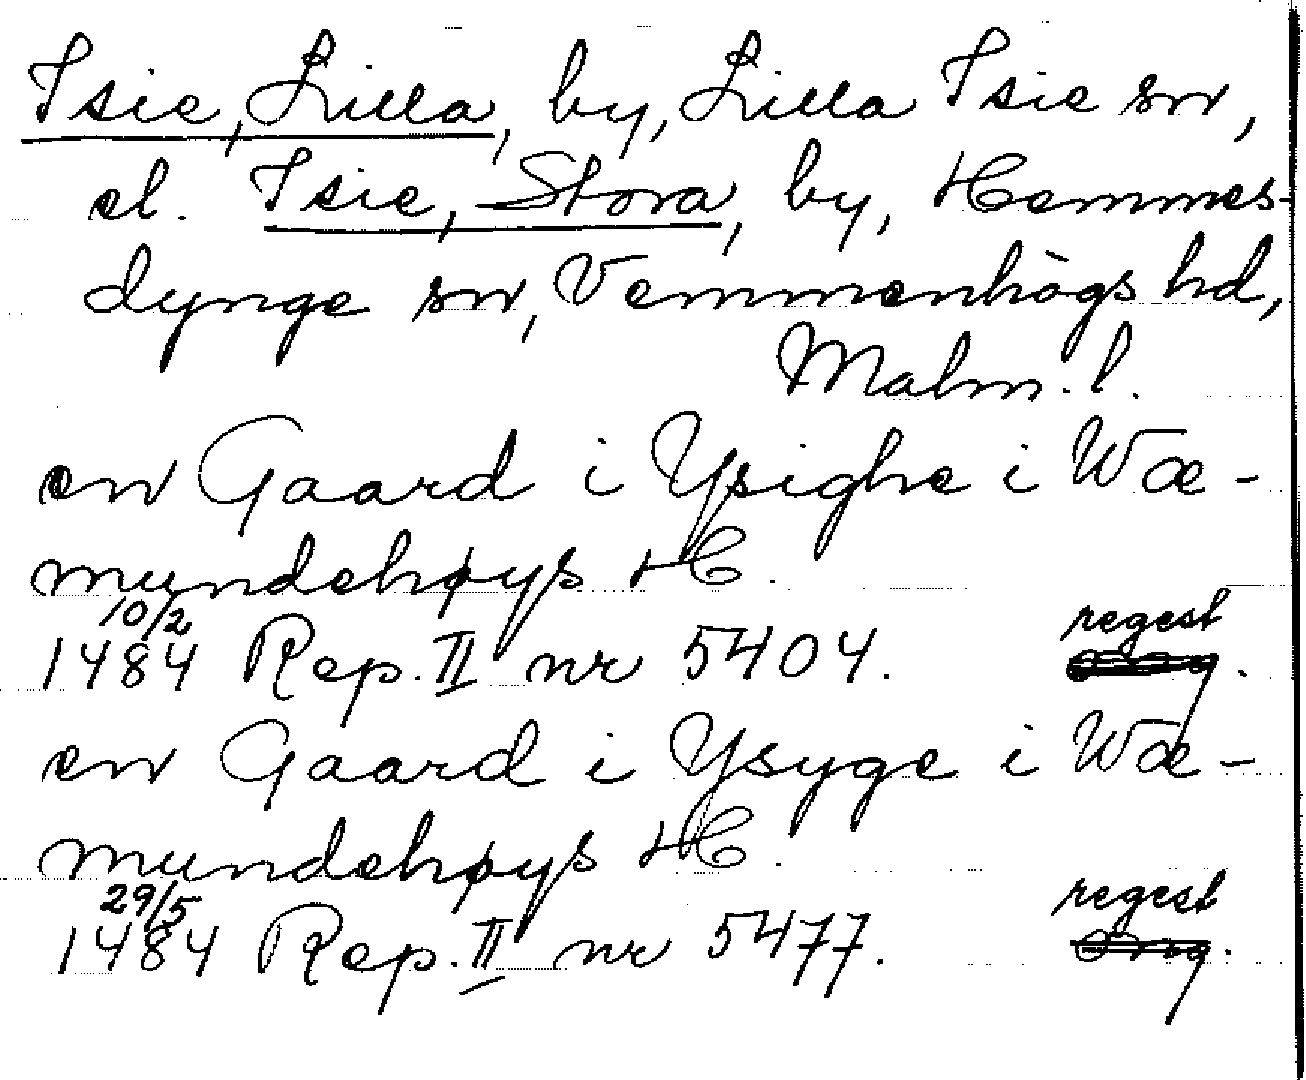 Isie, Lilla, by, Lilla Isie sn,
el. Isie, Stora, by, Hemmes-
dynge sn, Vemmenhögs hd,
Malm. l.
en Gaard i Ysighe i Wæ-
mundehøys H.
10/2
1484 Rep. II nr 5404. regest
en Gaard i Ysyge i Wæ-
mundehøys H.
29/5
1484 Rep. II nr 5477. regest